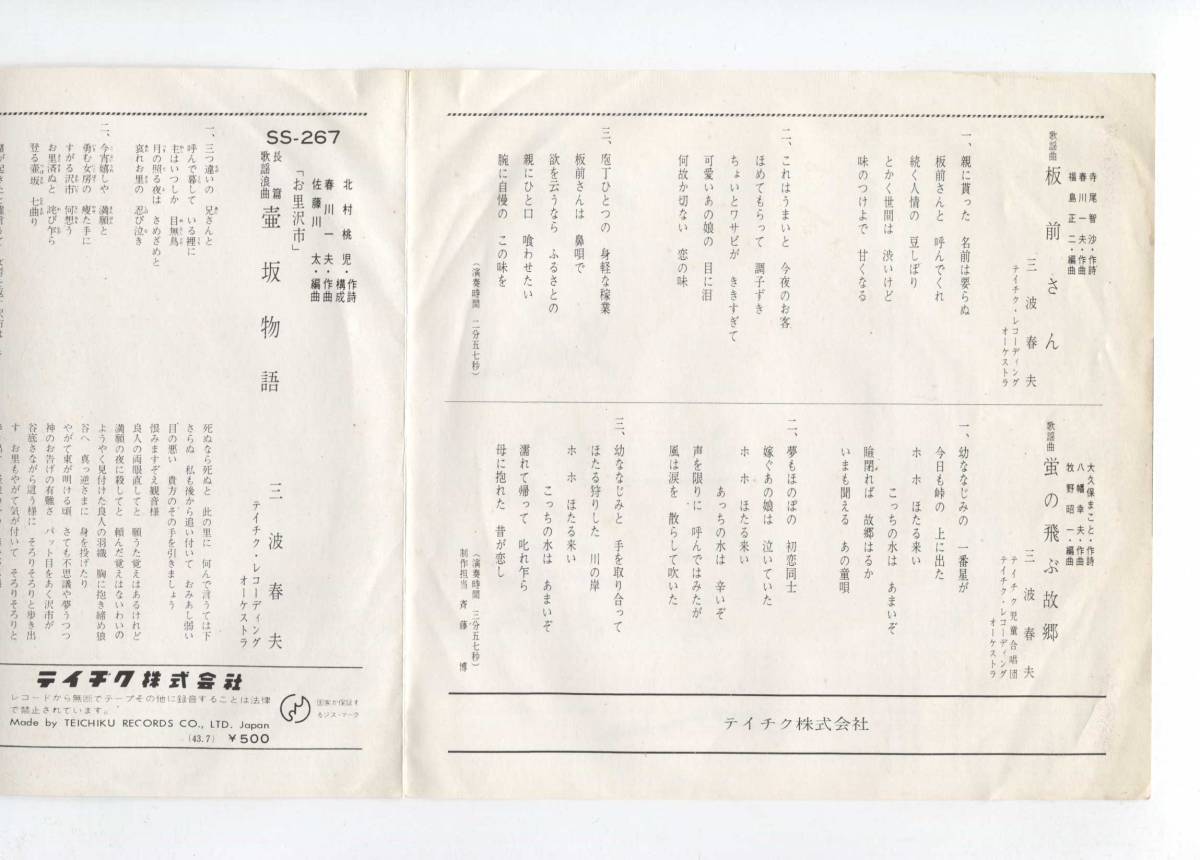 歌謡曲
板前さん
寺尾智沙・作詩
春川一夫・作曲
福島正二・編曲
三波春夫
テイチク・レコーディング
オーケストラ
一、親に貰った 名前は要らぬ
板前さんと 呼んでくれ
続く人情の 豆しぼり
とかく世間は 渋いけど
味のつけよで 甘くなる
二、これはうまいと 今夜のお客
ほめてもらって 調子ずき
ちょいとワサビが きさすぎて
可愛いあの娘の 目に泪
何故か切ない 恋の味
三、庖丁ひとつの 身軽な稼業
板前さんは 鼻唄で
欲を云うなら ふるさとの
親にひと口 喰わせたい
腕に自慢の この味を
(演奏時間 二分五七秒)
歌謡曲
蛍の飛ぶ故郷
大久保まこと・作詩
八幡幸夫・作曲
牧野昭一・編曲
三波春夫
テイチク児童合唱団
テイチク・レコーディング
オーケストラ
一、幼ななじみの 一番星が
今日も峠の 上に出た
ホ ホ ほたる来い
こっちの水は あまいぞ
瞼閉れば 故郷はるか
いまも聞える あの童唄
二、夢もほのぼの 初恋同士
嫁ぐあの娘は 泣いていた
ホ ホ ほたる来い
あっちの水は 辛いぞ
声を限りに 呼んではみたが
風は涙を 散らして吹いた
三、幼ななじみと 手を取り合って
ほたる狩りした 川の岸
ホ ホ ほたる来い
こっちの水は あまいぞ
濡れて帰って 叱れ乍ら
母に抱れた 昔が恋し
(演奏時間 三分五七秒)
制作担当 斉藤 博
テイチク株式会社
SS-267
北村桃児・作詩
構成
春川一夫・作曲
佐藤川太・編曲
長篇
歌謡浪曲
「お里沢市」
壷坂物語
三波春夫
テイチク・レコーディング
オーケストラ
一、三つ違いの 兄さんと
呼んで暮して いる裡に
主はいつしか 目無鳥
月の照る夜は さめざめと
哀れお里の 忍び泣き
二、今宵嬉しや 満願と
勇む女房の 痩た手に
すがる沢市 何想う
お里済ぬと 詫び乍ら
登る壷坂 七曲り
死ぬなら死ぬと 此の里に 何んで言うては下
さらぬ 私も後から追い付いて おみあし弱い
目の悪い 貴方のその手を引きましょう
恨みますぞえ観音様
良人の両眼直してと 願うた覚えはあるけれど
満願の夜に殺してと 頼んだ覚えはないわいの
ようやく見付けた良人の羽織 胸に抱き締め狼
谷へ 真っ逆さまに 身を投げたり
やがて東が明ける頃 さても不思議や夢うつつ
神のお告げの有難さ パット目をあく沢市が
谷底さながら這う様に そろりそろりと歩き出
す お里もやがて気が付いて そろりそろりと
テイチク株式会社
レコードから無断でテープその他に録音することは法律
で禁止されています。
Made by TEICHIKU RECORDS CO., LTD. Japan
(43.7) ¥500
国家が保証す
るジス・マーク